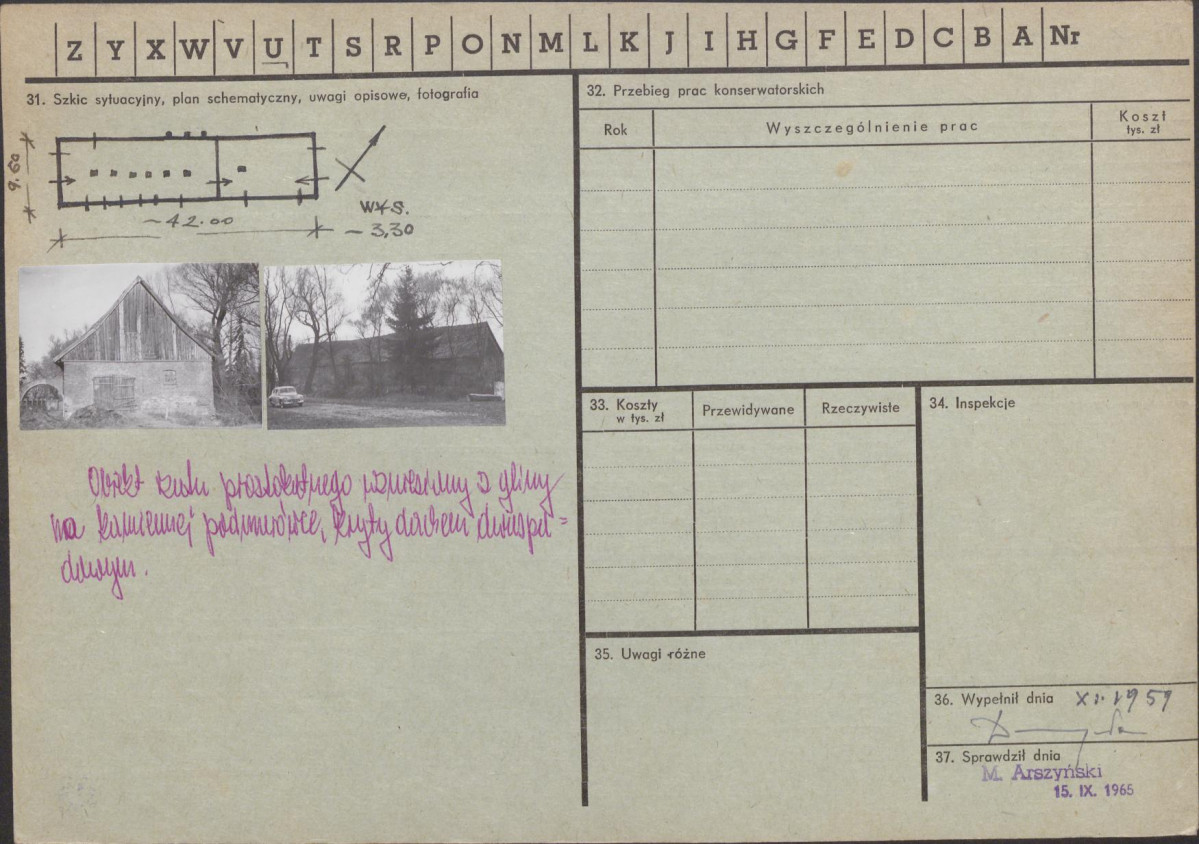 Z Y X W V U T S R P O N M L K J I H G F E D C B A Nr
31. Szkic sytuacyjny, plan schematyczny, uwagi opisowe, fotografia
9.60
~42.00
WYS.
~3,30
Obiekt rzutu prostokątnego wzniesiony z gliny
na kamiennej podmurówce, kryty dachem dwuspa=
dowym.
32. Przebieg prac konserwatorskich
Rok
Wyszczególnienie prac
Koszt
tys. zł
33. Koszty
w tys. zł
Przewidywane
Rzeczywiste
34. Inspekcje
35. Uwagi różne
36. Wypełnił dnia XI.1959
37. Sprawdził dnia
M. Arszyński
15. IX. 1965